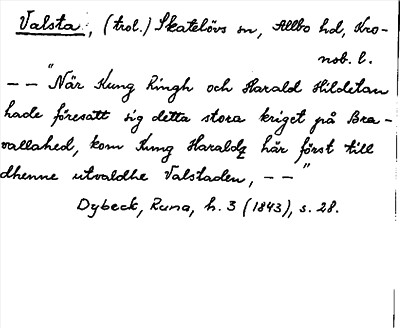 Valsta, (trol.) Skatelövs sn, Allbo hd, Kro-
nob. l.
— — "När Kung Ringh och Harald Hildetan
hade föresatt sig detta stora kriget på Bra-
vallahed, kom Kung Haraldz här först till
dhenne utvaldhe Valstaden, — — "
Dybeck, Runa, h. 3 (1843), s. 28.